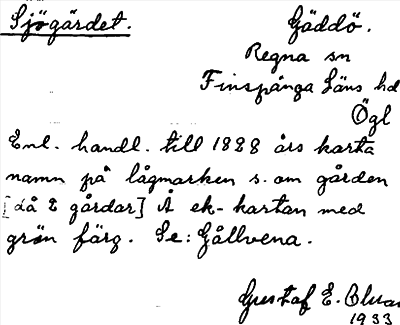 Sjögärdet. Gäddö.
Regna sn
Finspånga Läns hd
Ögl
Enl. handl. till 1828 års karta
namn på lågmarken s. om gården
[då 2 gårdar] Å ek-kartan med
grön färg. Se: Gållvena.
Gustaf E.
1933